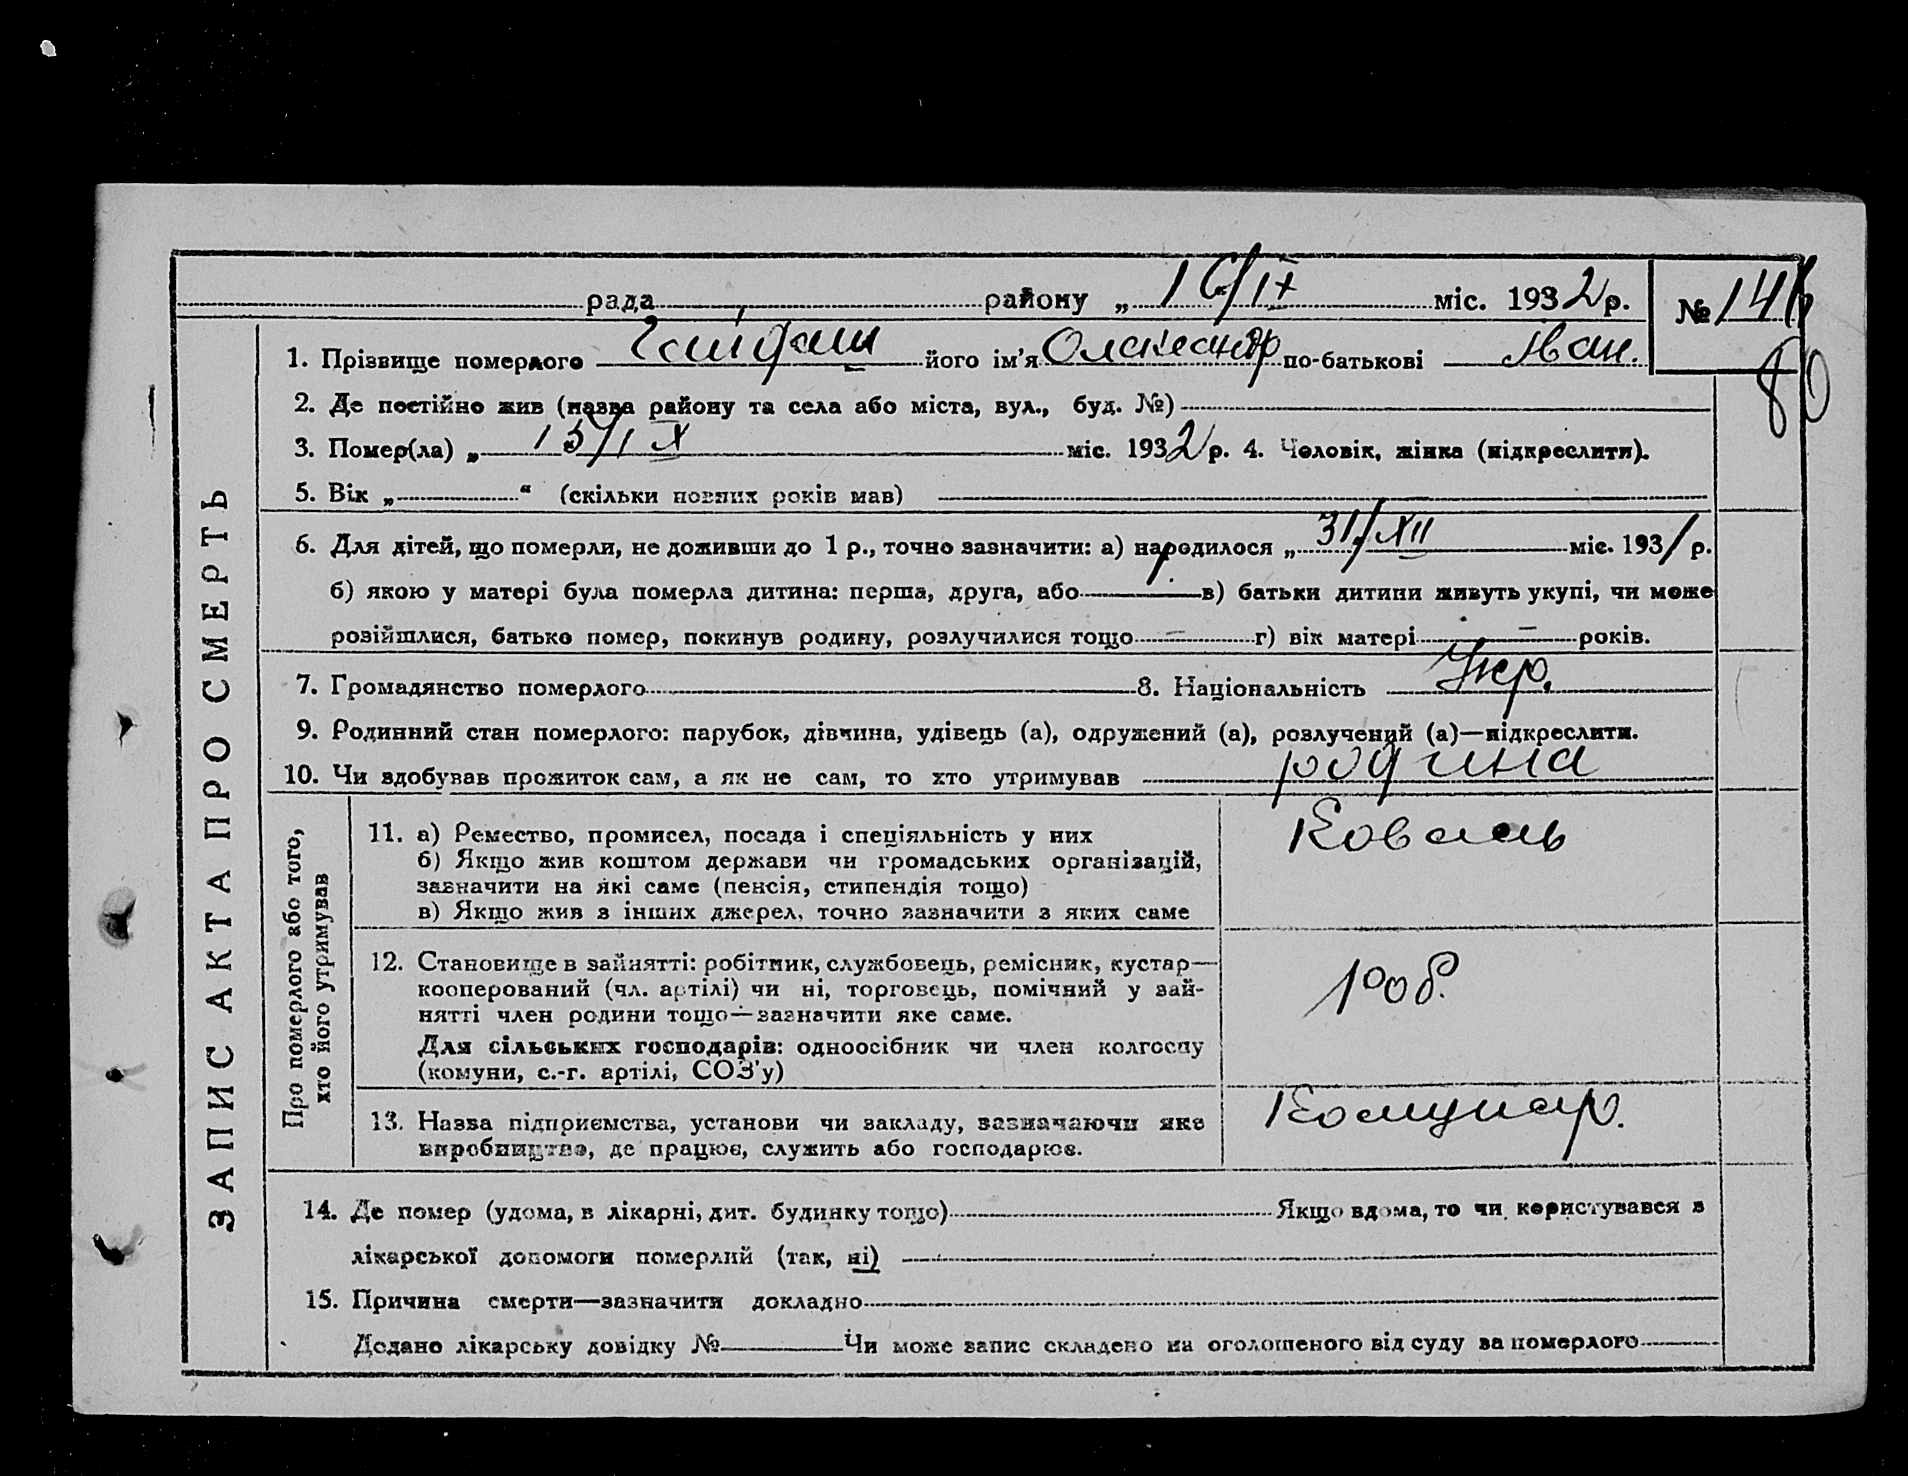 рада району „ 16/IX міс. 1932 р. № 146
80
1. Прізвище померлого його ім'я Олександр по-батькові Іван.
2. Де постійно жив (назва району та села або міста, вул., буд. №)
3. Помер(ла) „ 15/IX міс. 1932 р. 4. Чоловік, жінка (підкреслити).
5. Вік „ “ (скільки повних років мав)
6. Для дітей, що померли, не доживши до 1 р., точно зазначити: а) народилося „ 31/XII міс. 1931 р.
б) якою у матері була померла дитина: перша, друга, або в) батьки дитини живуть укупі, чи може
розійшлися, батько помер, покинув родину, розлучилися тощо — г) вік матері — років.
7. Громадянство померлого 8. Національність Укр.
9. Родинний стан померлого: парубок, дівчина, удівець (а), одружений (а), розлучений (а)—підкреслити.
10. Чи здобував прожиток сам, а як не сам, то хто утримував родина
ЗАПИС АКТА ПРО СМЕРТЬ
Про померлого або того,
хто його утримував
11. а) Ремество, промисел, посада і спеціяльність у них Коваль
б) Якщо жив коштом держави чи громадських організацій,
зазначити на які саме (пенсія, стипендія тощо)
в) Якщо жив з інших джерел, точно зазначити з яких саме
12. Становище в зайнятті: робітник, службовець, ремісник, кустар—
кооперований (чл. артілі) чи ні, торговець, помічний у зай-
нятті член родини тощо—зазначити яке саме. роб.
Для сільських господарів: одноосібник чи член колгоспу
(комуни, с.-г. артілі, СОЗ'у)
13. Назва підприємства, установи чи закладу, зазначаючи яке Комунар.
виробництво, де працює, служить або господарює.
14. Де помер (удома, в лікарні, дит. будинку тощо) Якщо вдома, то чи користувався з
лікарської допомоги померлий (так, ні)
15. Причина смерти—зазначити докладно
Додано лікарську довідку № Чи може запис складено на оголошеного від суду за померлого